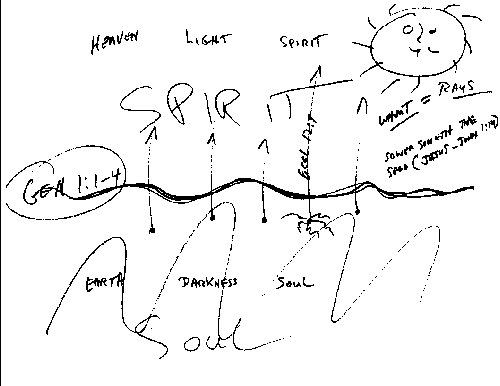 HEAVEN LIGHT SPIRIT
SPIRIT
= RAYS
SOWER SOWETH THE
SEED (JESUS - JOHN 1:14)
GEN 1:1-4
EARTH DARKNESS SOUL
Soul